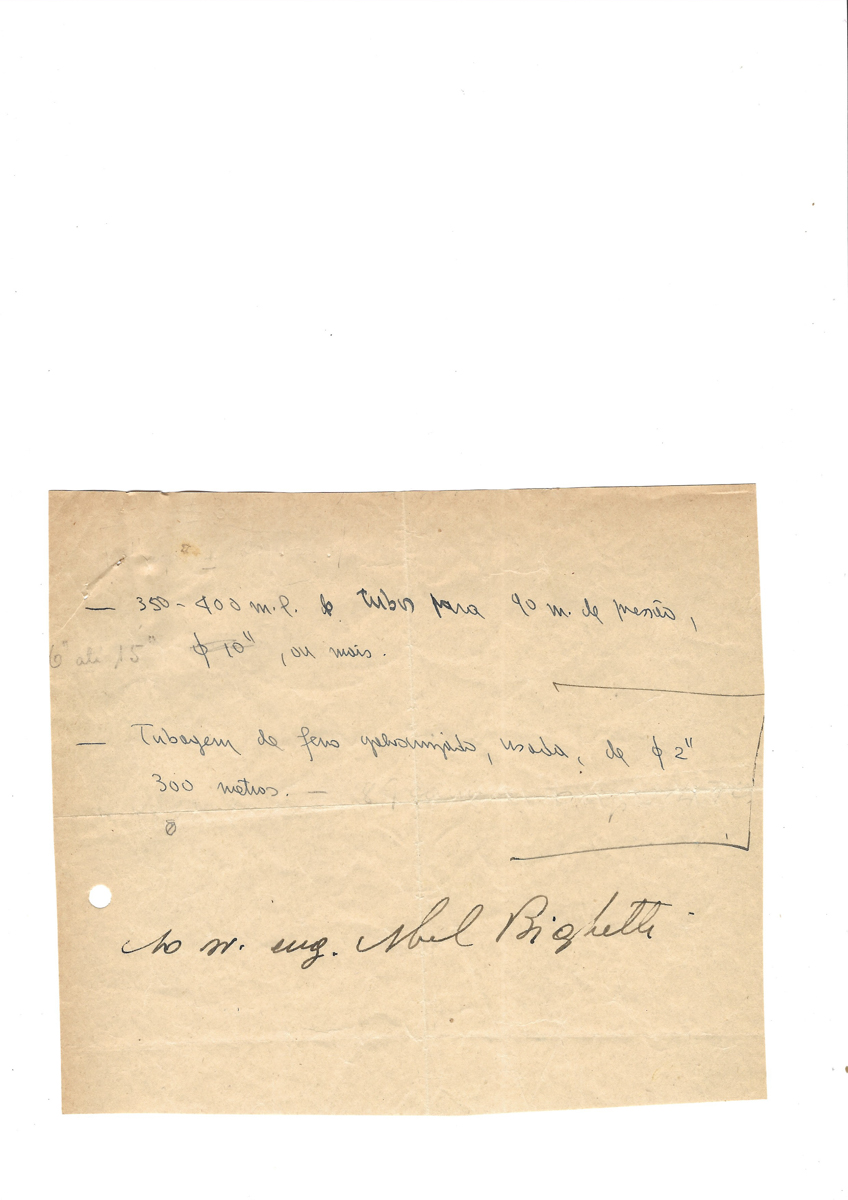 — 350-400 m.l. de tubos para 90 m. de pressão,
6" até 15" ϕ 10", ou mais.
— Tubagem de ferro galvanizado, usada, de ϕ 2"
300 metros. —
Ao sr. eng. Abel Bighetti